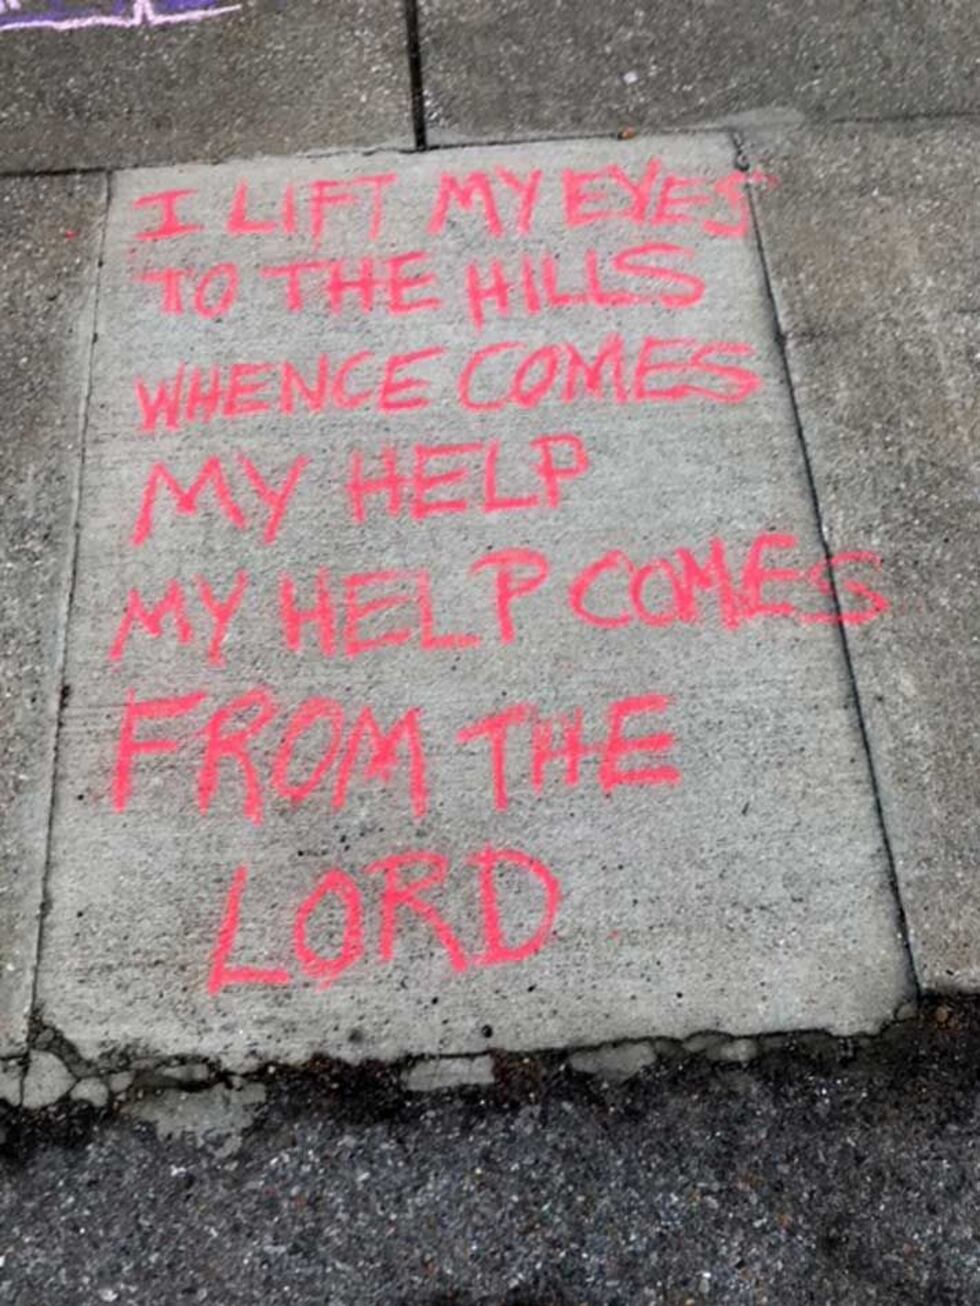 I LIFT MY EYES
TO THE HILLS
WHENCE COMES
MY HELP
MY HELP COMES
FROM THE
LORD